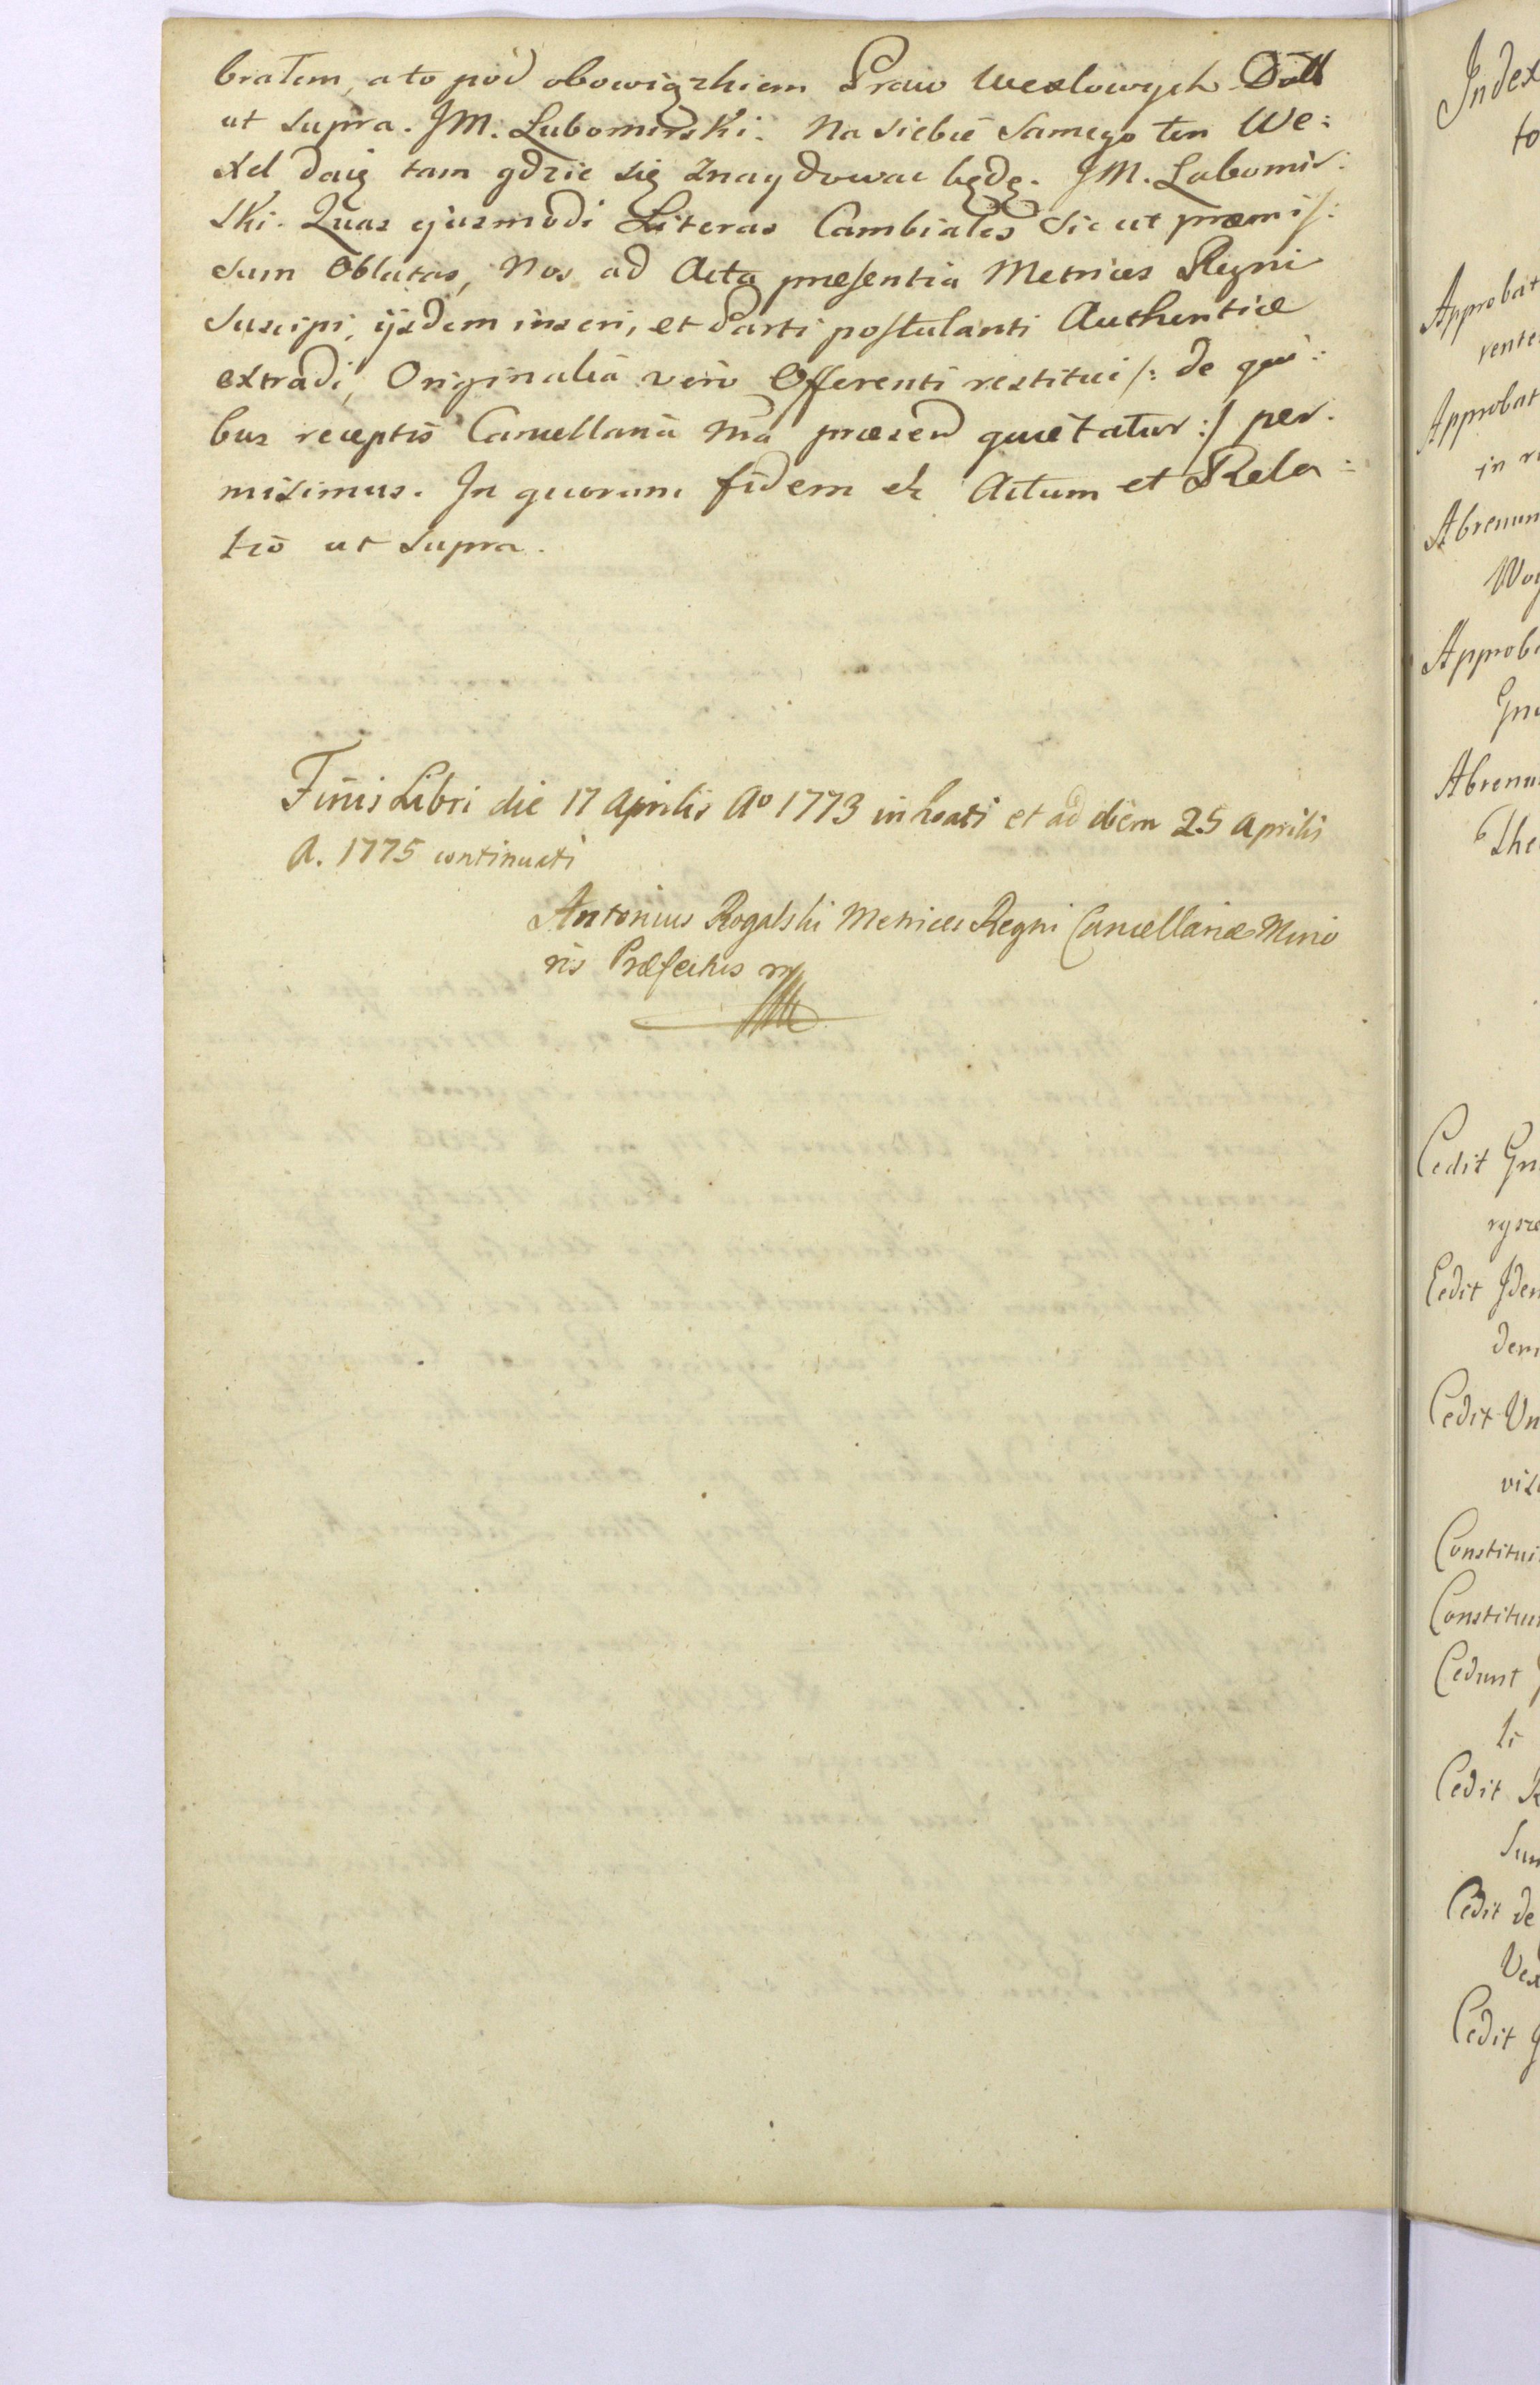 bratem, a to pod obowiązkiem Praw Wexlowych Datt
ut supra. JM. Lubomirski. Na siebie samego ten We:
xel daię tam gdzie się znaydować będę. JM. Lubomir:
ski. Quas ejusmodi Literas Cambiales sic ut præmis:
sum Oblatas, Nos ad Acta præsentia Metrices Regni
suscipi, ijsdem inseri, et Parti postulanti Authentice
extradi, Originalia vero Offerenti restitui /: de qui:
bus receptis Cancellaria Nra præsen quietatur :/ per:
misimus. In quorum fidem etc Actum et Rela:
tio ut supra.
Finis Libri die 17 Aprilis Ao 1773 inchoati et ad diem 25 Aprilis
A. 1775 continuati
Antonius Rogalski Metrices Regni Cancellariæ Mino
ris Præfectus mp
Index
to
Approbat
rente
Approbat
in r
Abrenun
Woj
Approb
Gn
Abrenu
The
Cedit Gn
rysze
Cedit Iden
dem
Cedit Un
vis
Constitui
Constitui
Cedunt
li
Cedit
Sum
Cedit de
Vex
Cedit